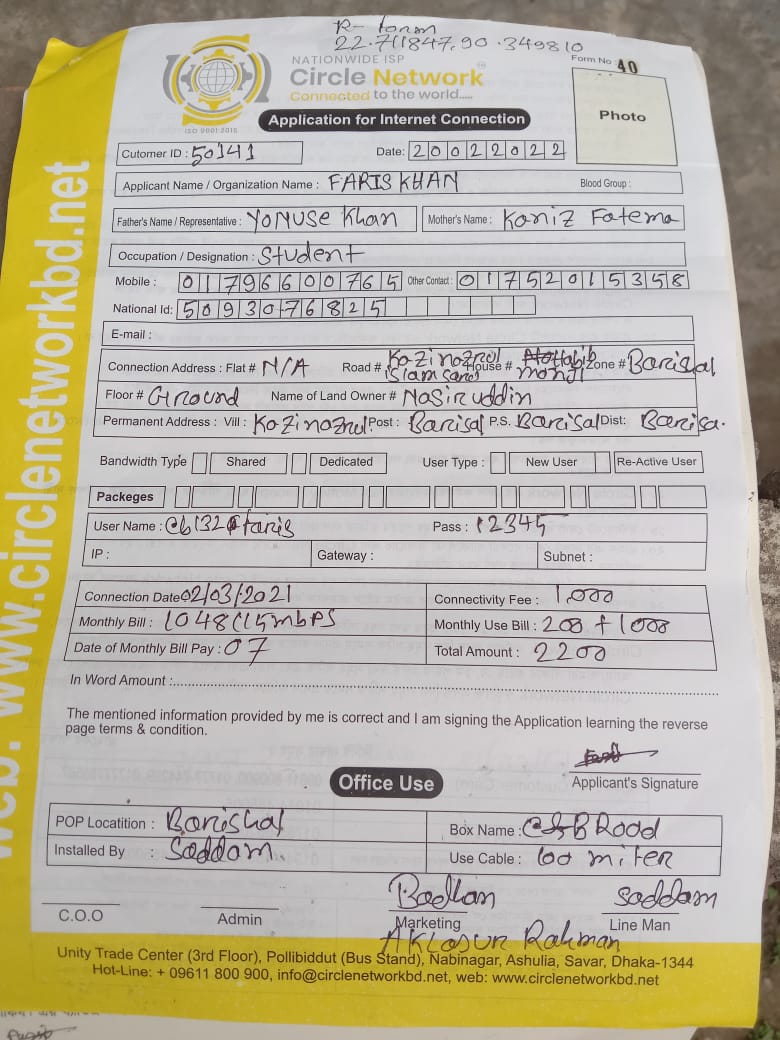 R- form
22.711847,90.349810
NATIONWIDE ISP
Circle Network
Connected to the world.....
ISO 9001:2015
Form No : 40
Photo
Application for Internet Connection
Cutomer ID : 50141
Date: 20022022
Applicant Name / Organization Name : FARIS KHAN Blood Group :
Father's Name / Representative : YONUSE Khan Mother's Name : Kaniz Fatema
Occupation / Designation : Student
Mobile : 01796600765 Other Contact : 01752015358
National Id: 5093076825
E-mail :
Connection Address : Flat # N/A Road # Kazinazrul islam sarod House # Habib monjil Zone # Barishal
Floor # Ground Name of Land Owner # Nasir uddin
Permanent Address : Vill : Kazinazrul Post : Barisal P.S. Barisal Dist: Barisa.
Bandwidth Type Shared Dedicated User Type : New User Re-Active User
Packeges
User Name : cb132@faris Pass : 12345
IP : Gateway : Subnet :
Connection Date 02/03/2021 Connectivity Fee : 1,000
Monthly Bill : 1048(15mbPS Monthly Use Bill : 200 + 1000
Date of Monthly Bill Pay : 07 Total Amount : 2200
In Word Amount :
The mentioned information provided by me is correct and I am signing the Application learning the reverse
page terms & condition.
Applicant's Signature
Office Use
POP Locatition : Barishal Box Name : C&B Road
Installed By : Saddam Use Cable : 100 miter
C.O.O Admin Badhan Marketing saddam Line Man
Rahman
Unity Trade Center (3rd Floor), Pollibiddut (Bus Stand), Nabinagar, Ashulia, Savar, Dhaka-1344
Hot-Line: + 09611 800 900, info@circlenetworkbd.net, web: www.circlenetworkbd.net
web: www.circlenetworkbd.net